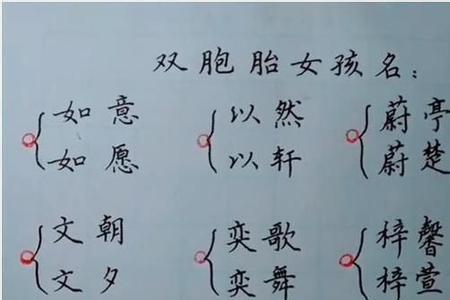 双胞胎女孩名：
如意 以然 蔚亭
如愿 以轩 蔚楚
文朝 奕歌 梓馨
文夕 奕舞 梓萱